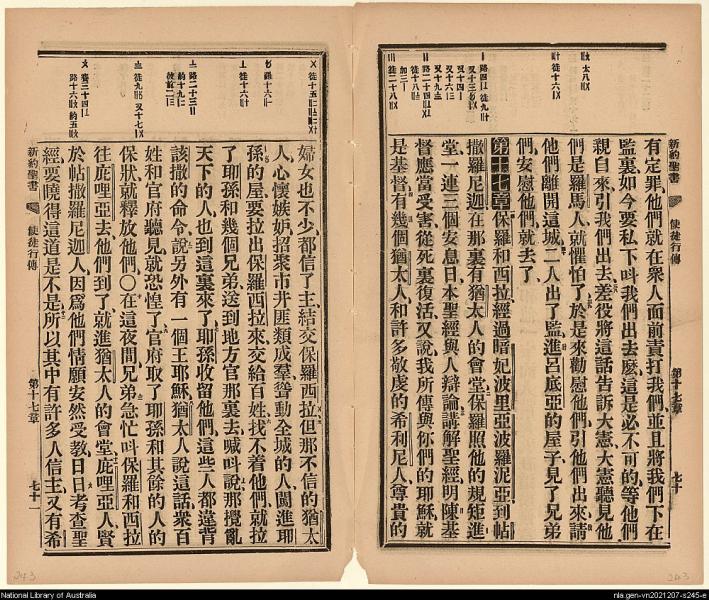 新約聖書
使徒行傳
第十七章
七十
有定罪他們就在衆人面前責打我們並且將我們下在
監裏如今要私下叫我們出去麼這是必不可的等他們
親自來引我們出去差役將這話告訴大憲大憲聽見他
們是羅馬人就懼怕了於是來勸慰他們引他們出來請
他們離開這城二人出了監進呂底亞的屋子見了兄弟
們安慰他們就去了
第十七章保羅和西拉經過暗妃波里亞波羅泥亞到帖
撒羅尼迦在那裏有猶太人的會堂保羅照他的規矩進
堂一連三個安息日本聖經與人辯論講解聖經明陳基
督應當受害從死裏復活又說我所傳與你們的耶穌就
是基督有幾個猶太人和許多敬虔的希利尼人尊貴的
婦女也不少都信了主結交保羅西拉但那不信的猶太
人心懷嫉妒招聚市井匪類成羣聳動全城的人闖進耶
孫的屋要拉出保羅西拉來交給百姓找不着他們就拉
了耶孫和幾個兄弟送到地方官那裏去喊叫說那攪亂
天下的人也到這裏來了耶孫收留他們這些人都違背
該撒的命令說另外有一個王耶穌猶太人說這話衆百
姓和官府聽見就恐惶了官府取了耶孫和其餘的人的
保狀就釋放他們○在這夜間兄弟急忙叫保羅和西拉
往庇哩亞去他們到了就進猶太人的會堂庇哩亞人賢
於帖撒羅尼迦人因爲他們情願安然受教日日考查聖
經要曉得這道是不是所以其中有許多人信主又有希
新約聖書
使徒行傳
第十七章
七十一
243
243
National Library of Australia
nla.gen-vn2021207-s245-e